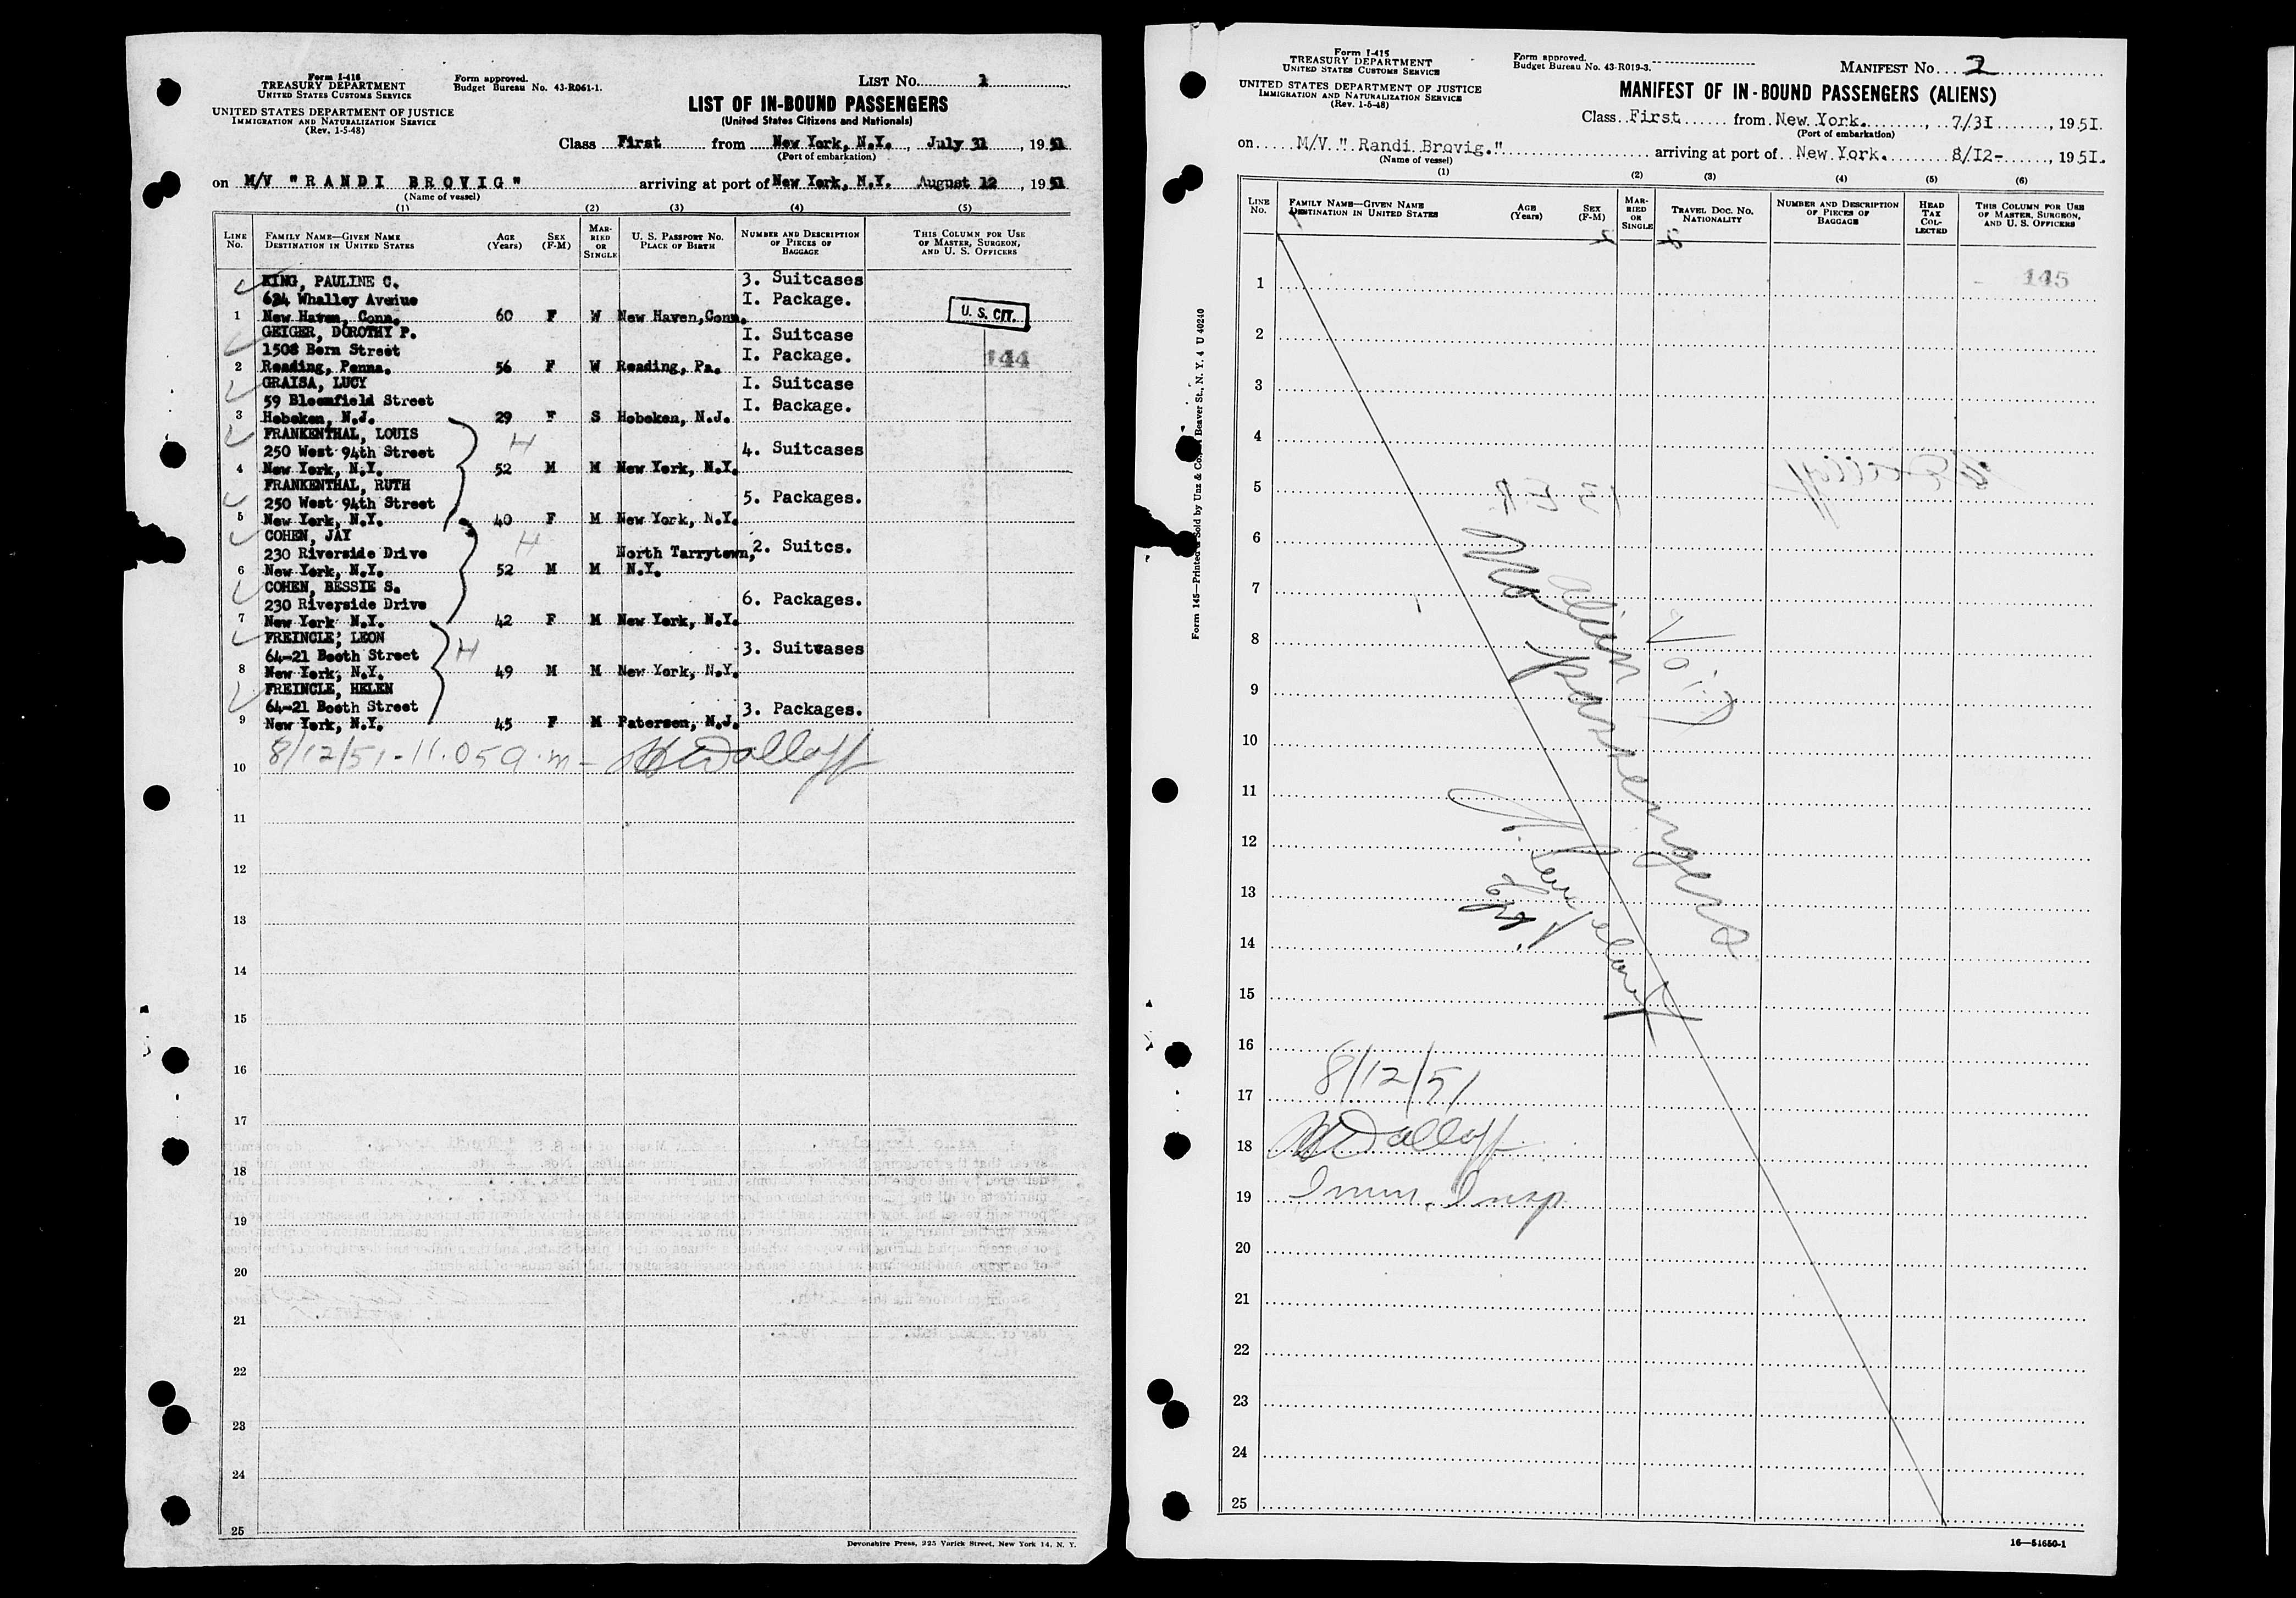 Form I-416
TREASURY DEPARTMENT
UNITED STATES CUSTOMS SERVICE
UNITED STATES DEPARTMENT OF JUSTICE
IMMIGRATION AND NATURALIZATION SERVICE
(Rev. 1-5-48)
Form approved.
Budget Bureau No. 43-R061-1.
LIST No. 1
LIST OF IN-BOUND PASSENGERS
(United States Citizens and Nationals)
Class First from New York, N.Y., July 31, 1951
(Port of embarkation)
on M/V "RANDI BROVIG" arriving at port of New York, N.Y. August 12, 1951
(Name of vessel)
(1) (2) (3) (4) (5)
LINE No. FAMILY NAME—GIVEN NAME DESTINATION IN UNITED STATES AGE (Years) SEX (F-M) MARRIED OR SINGLE U. S. PASSPORT NO. PLACE OF BIRTH NUMBER AND DESCRIPTION OF PIECES OF BAGGAGE THIS COLUMN FOR USE OF MASTER, SURGEON, AND U. S. OFFICERS
KING, PAULINE C. 3. Suitcases
624 Whalley Avenue I. Package.
1 New Haven, Conn. 60 F W New Haven, Conn. U. S. CIT.
GEIGER, DOROTHY P. I. Suitcase
1508 Bern Street I. Package. 144
2 Reading, Penna. 56 F W Reading, Pa.
GRAISA, LUCY I. Suitcase
59 Bloomfield Street I. Package.
3 Hoboken, N.J. 29 F S Hoboken, N.J.
FRANKENTHAL, LOUIS H
250 West 94th Street 4. Suitcases
4 New York, N.Y. 52 M M New York, N.Y.
FRANKENTHAL, RUTH
250 West 94th Street 5. Packages.
5 New York, N.Y. 40 F M New York, N.Y.
COHEN, JAY H
230 Riverside Drive North Tarrytown, 2. Suitcs.
6 New York, N.Y. 52 M M N.Y.
COHEN, BESSIE S.
230 Riverside Drive 6. Packages.
7 New York N.Y. 42 F M New York, N.Y.
FREINCLE, LEON H
64-21 Booth Street 3. Suitcases
8 New York, N.Y. 49 M M New York, N.Y.
FREINCLE, HELEN
64-21 Booth Street 3. Packages.
9 New York, N.Y. 45 F M Paterson, N.J.
8/12/51 - 11.05 a.m -
10
11
12
13
14
15
16
17
18
19
20
21
22
23
24
25
Devonshire Press, 225 Varick Street, New York 14, N. Y.
Form I-415
TREASURY DEPARTMENT
UNITED STATES CUSTOMS SERVICE
UNITED STATES DEPARTMENT OF JUSTICE
IMMIGRATION AND NATURALIZATION SERVICE
(Rev. 1-5-48)
Form approved.
Budget Bureau No. 43-R019-3.
MANIFEST No. 2
MANIFEST OF IN-BOUND PASSENGERS (ALIENS)
Class First from New York., 7/31, 1951.
(Port of embarkation)
on M/V " Randi Brovig." arriving at port of New York. 8/12-, 1951.
(Name of vessel)
(1) (2) (3) (4) (5) (6)
LINE No. FAMILY NAME—GIVEN NAME DESTINATION IN UNITED STATES AGE (Years) SEX (F-M) MARRIED OR SINGLE TRAVEL DOC. NO. NATIONALITY NUMBER AND DESCRIPTION OF PIECES OF BAGGAGE HEAD TAX COLLECTED THIS COLUMN FOR USE OF MASTER, SURGEON, AND U. S. OFFICERS
1 145
2
3
4
5
6
7
8
9
10
11
12
13
14
15
16
17
18
19
20
21
22
23
24
25
No alien passengers
Void
8/12/51
Imm. Insp.
Form 145—Printed & Sold by Unz & Co., Beaver St., N. Y. 4 U 40240
16—54650-1